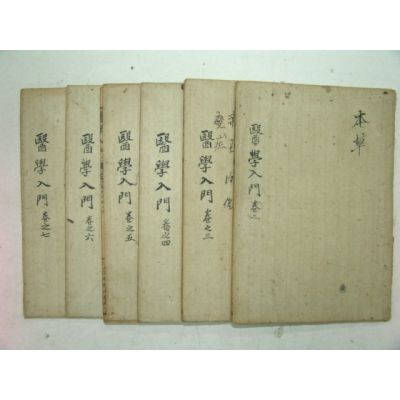 本草
醫學入門 卷之二
醫學入門 卷之三
醫學入門 卷之四
醫學入門 卷之五
醫學入門 卷之六
醫學入門 卷之七